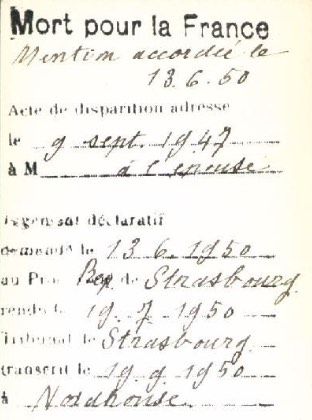 Mort pour la France
Mention accordée le
13.6.50
Acte de disparition adresse
le 9 sept. 1947
à M à l'épouse
Jugement déclaratif
demandé le 13 6 1950
au Pro Rep de Strasbourg
rendu le 19. 7 1950
Tribunal de Strasbourg
transcrit le 19 9 1950
à Nordhouse